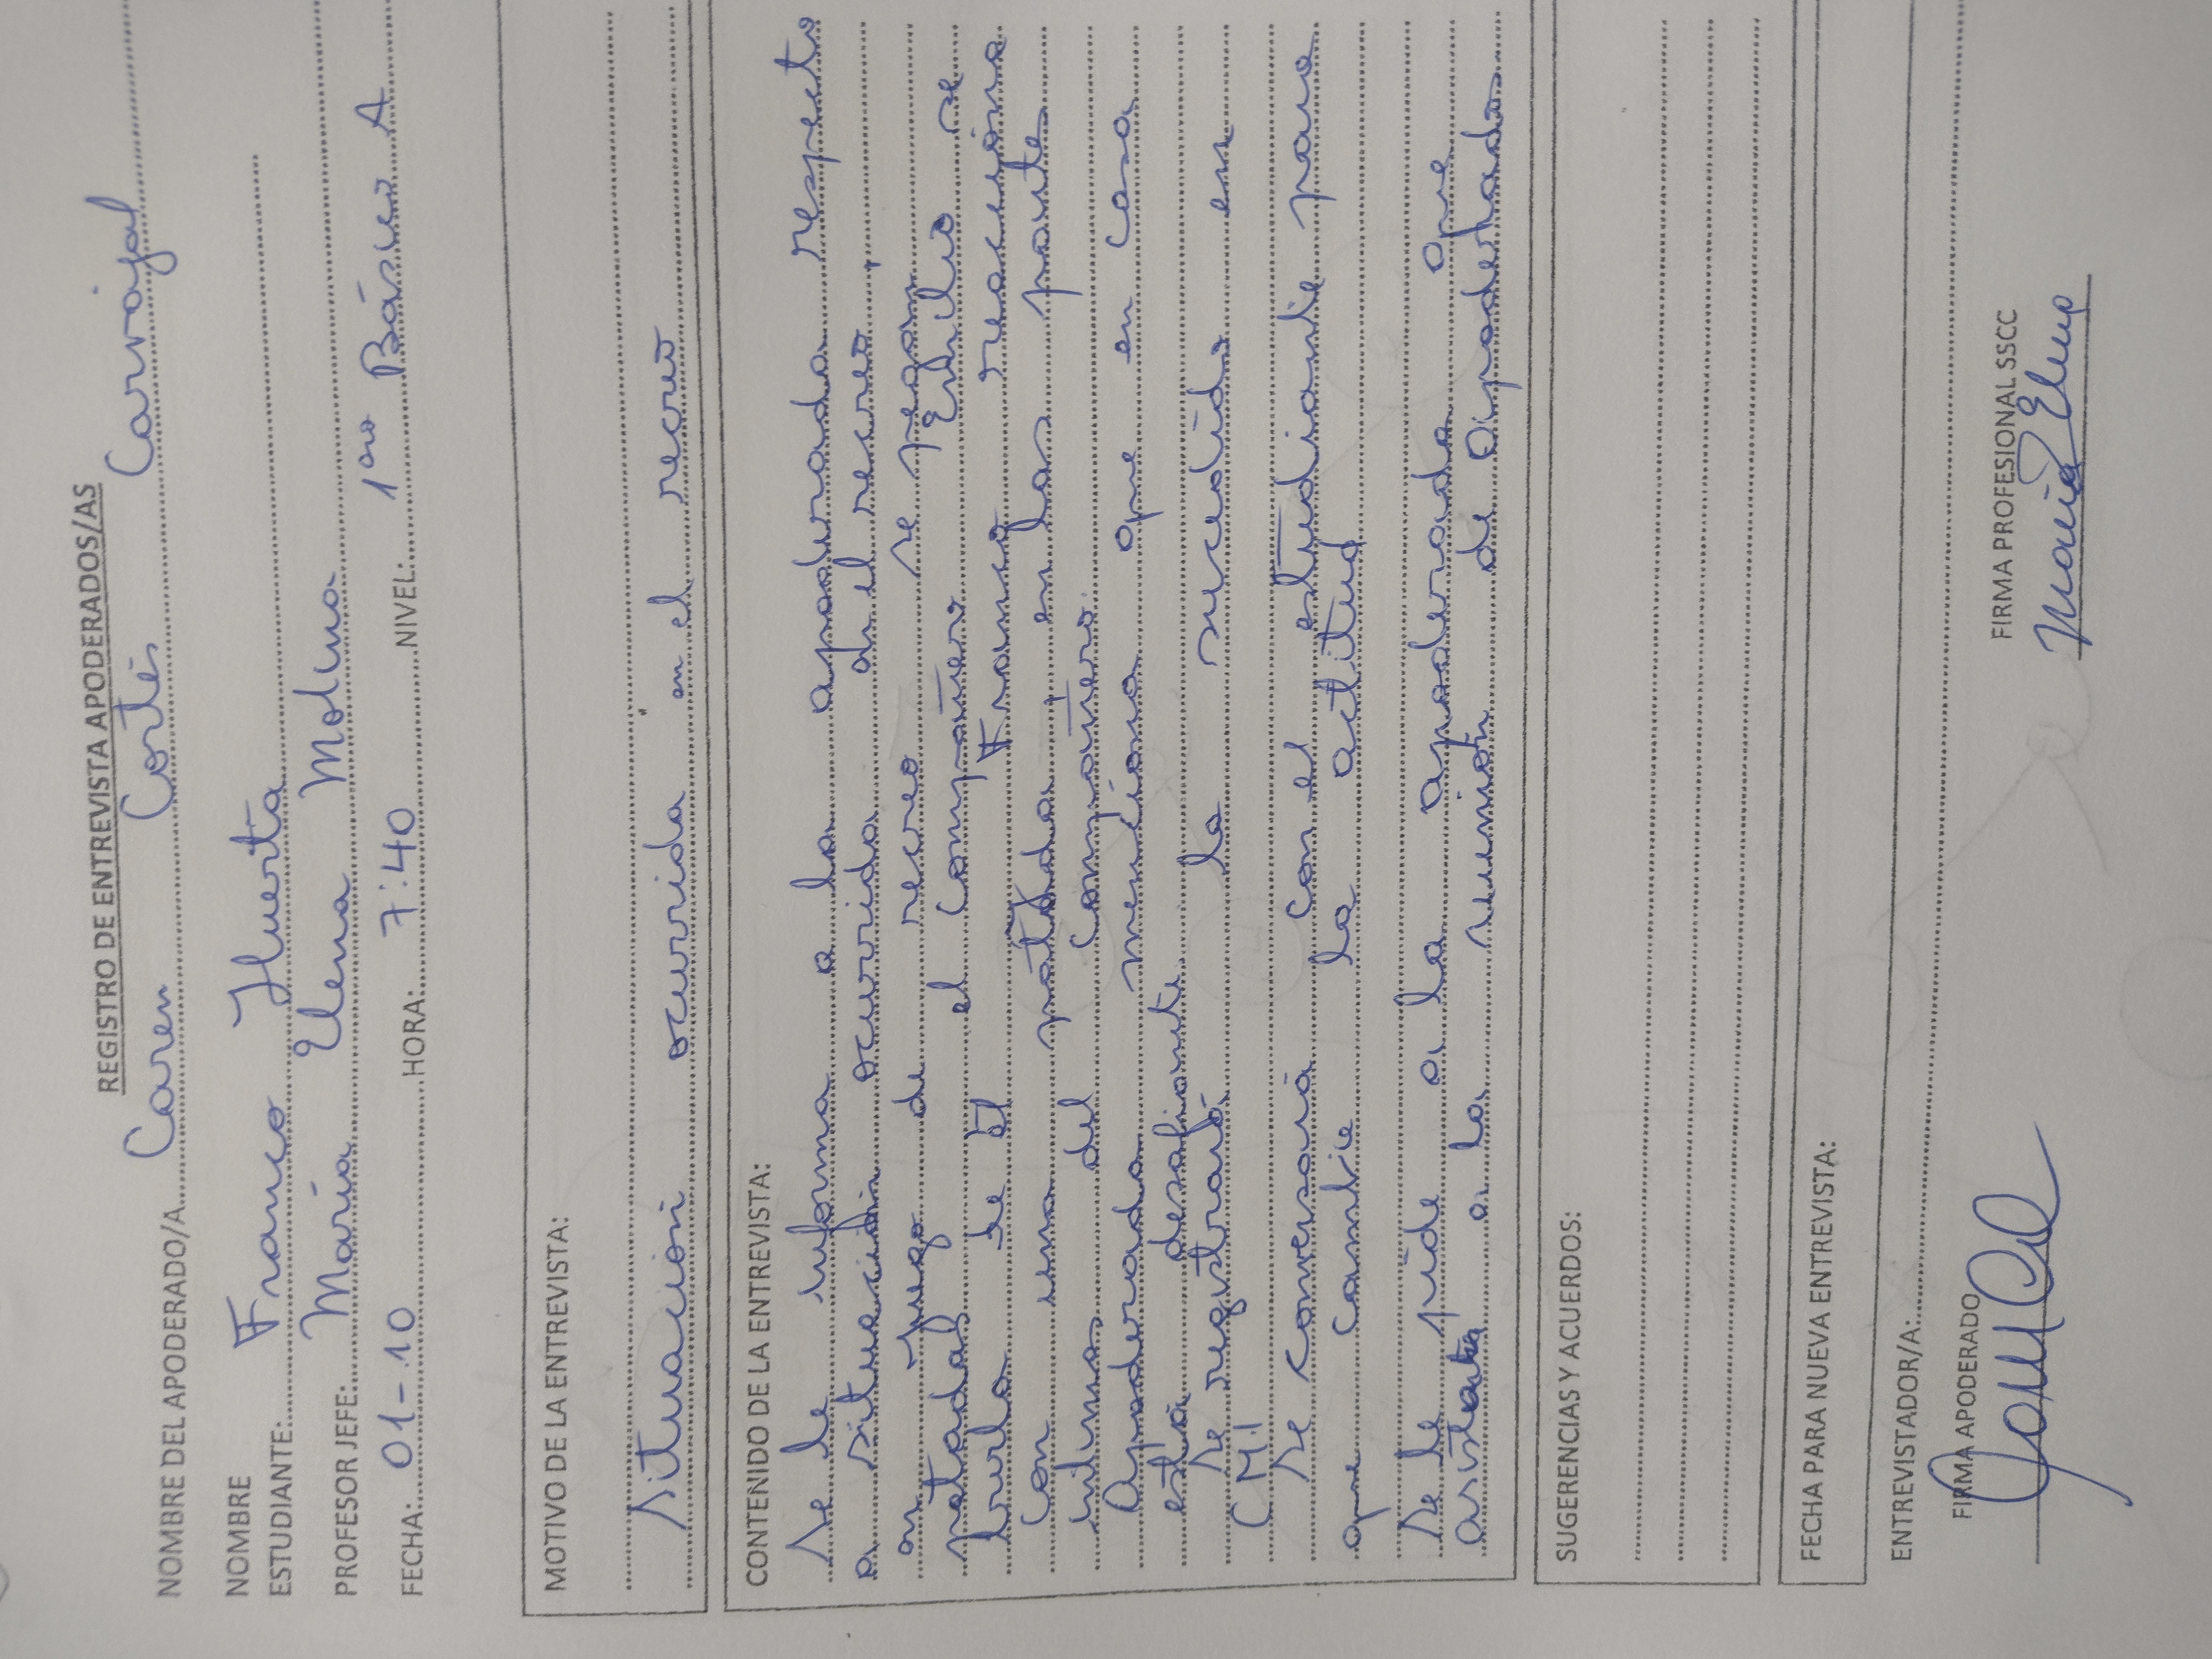 REGISTRO DE ENTREVISTA APODERADOS/AS
NOMBRE DEL APODERADO/A Caren Cortés Carvajal
NOMBRE
ESTUDIANTE: Franco Huerta
PROFESOR JEFE: María Elena Molina
FECHA: 01-10 HORA: 7:40 NIVEL: 1ero Básico A
MOTIVO DE LA ENTREVISTA:
Situación ocurrida en el recreo
CONTENIDO DE LA ENTREVISTA:
Se le informa a la apoderada respecto
a situación ocurrida en el recreo,
en juego de recreo se pegan
patadas el compañero Emilio se
burla de Él Franco reacciona
con una patada en las partes
intimas del compañero.
Apoderada menciona que en casa
está desafiante.
Se registrará lo sucedido en
C.M.I
Se conversará con el estudiante para
que cambie la actitud
Se le pide a la apoderada que
asista a la reunión de apoderados
SUGERENCIAS Y ACUERDOS:
FECHA PARA NUEVA ENTREVISTA:
ENTREVISTADOR/A:
FIRMA APODERADO FIRMA PROFESIONAL SSCC
María Elena